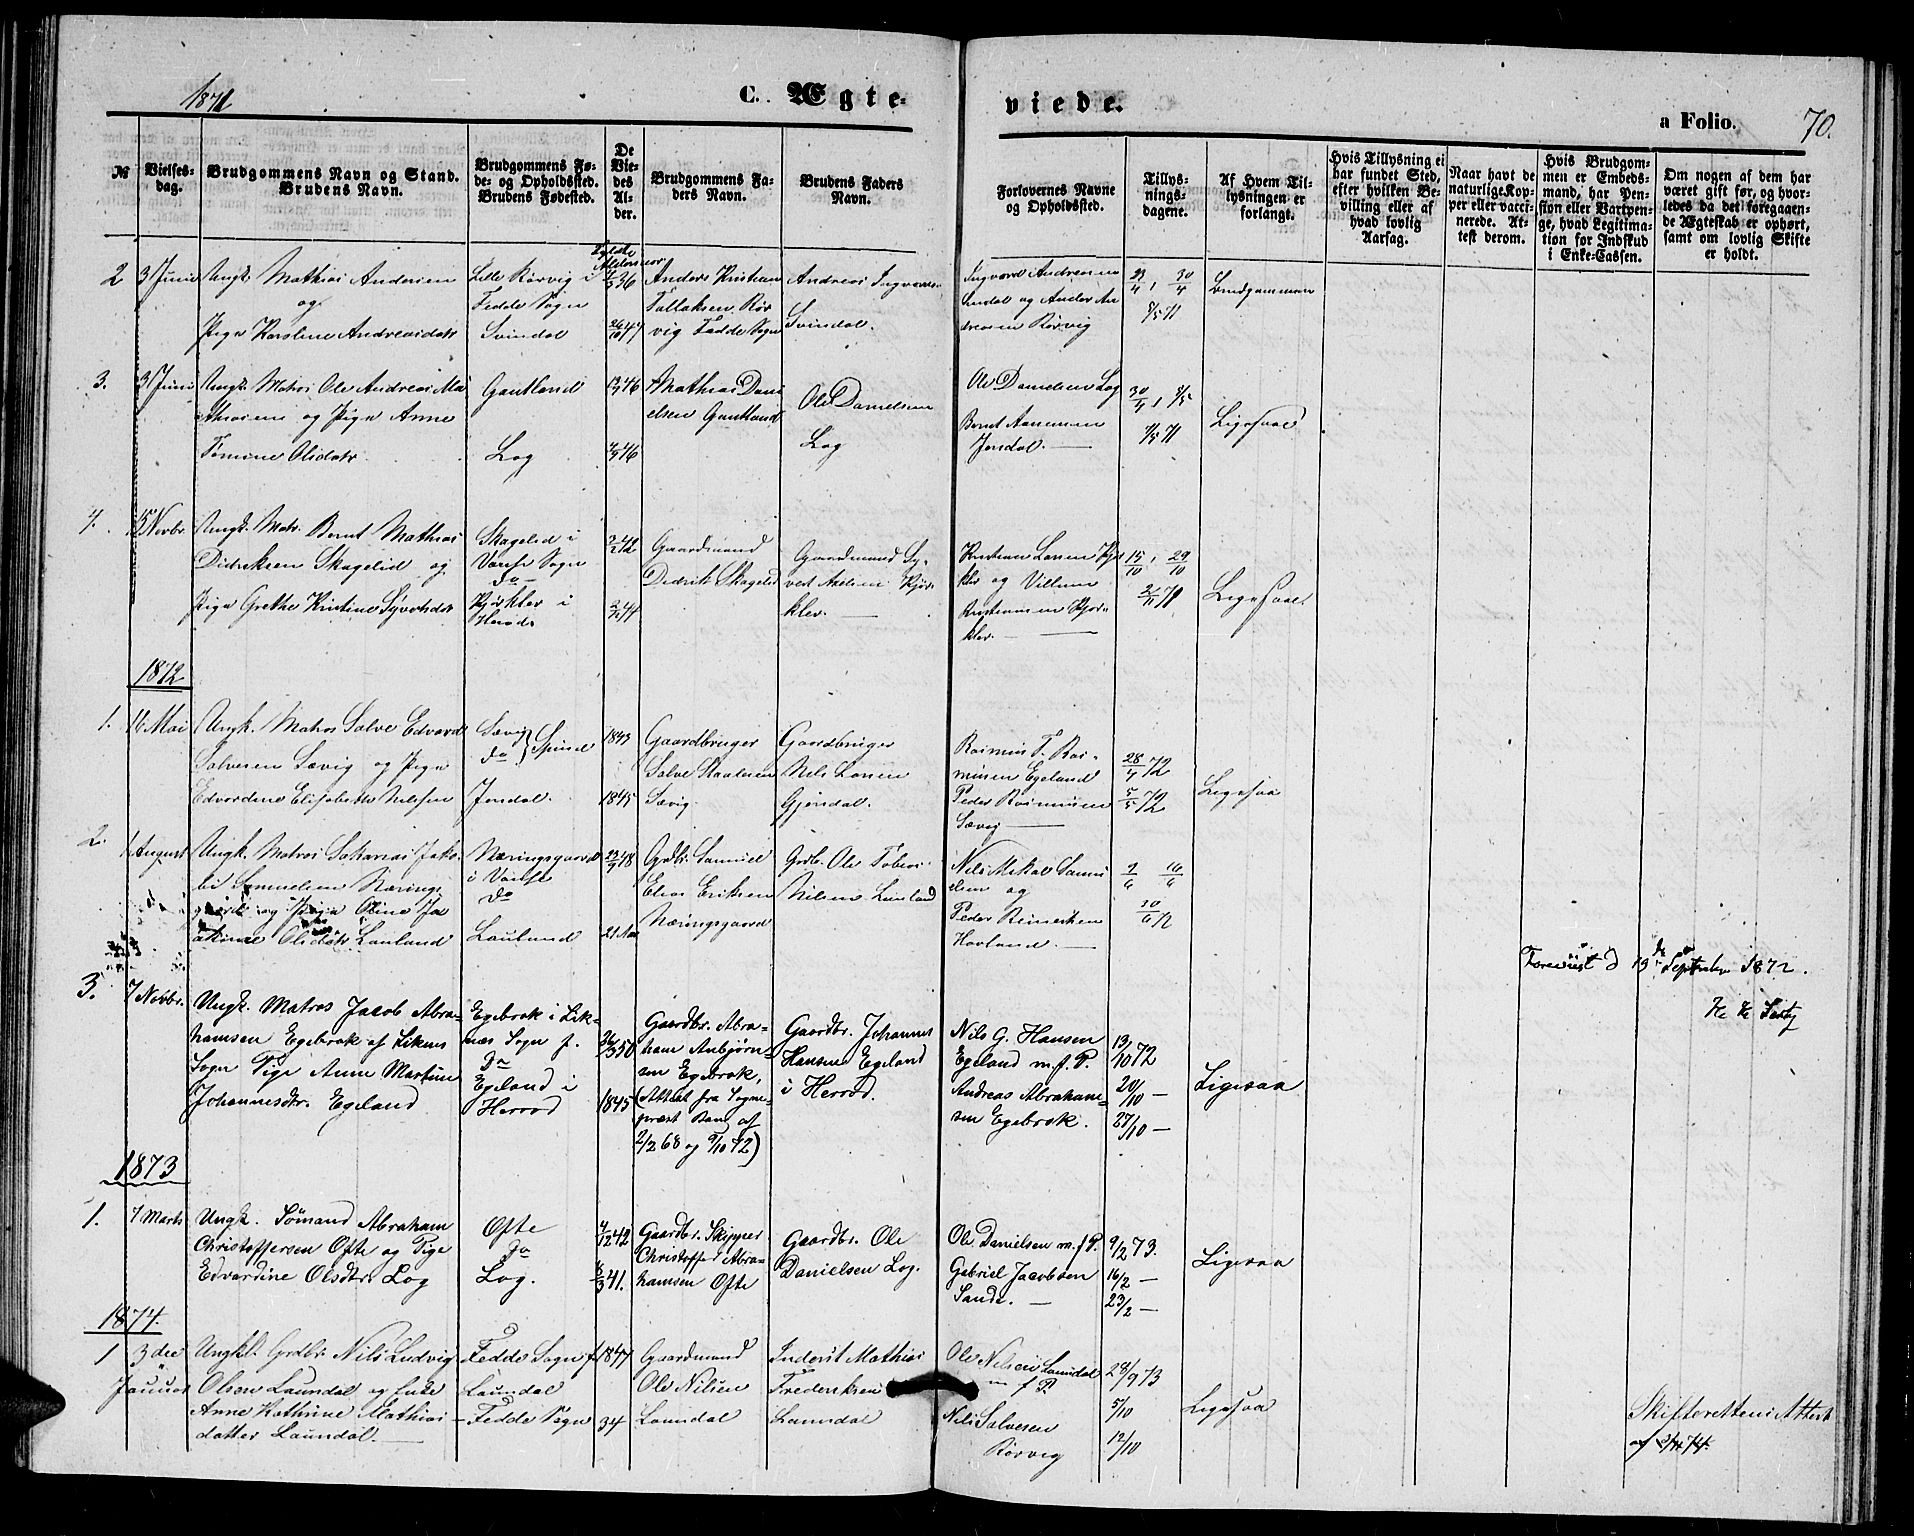 1871
C. Ægte-
viede.
a Folio. 70.
№
Vielses-
dag.
Brudgommens Navn og Stand.
Brudens Navn.
Brudgommens Fø-
de- og Opholdssted.
Brudens Fødested.
De
Vie-
des
Al-
der.
Brudgommens Fa-
ders Navn.
Brudens Faders
Navn.
Forlovernes Navne
og Opholdssted.
Tillys-
nings-
dagene.
Af Hvem Til-
lysningen er
forlangt.
Hvis Tillysning ei
har fundet Sted,
efter hvilken Be-
villing eller af
hvad lovlig
Aarsag.
Naar havt de
naturlige Kop-
per eller vacci-
nerede. At-
test derom.
Hvis Brudgom-
men er Embeds-
mand, har Pen-
sion eller Vartpen-
ge, hvad Legitima-
tion for Indskud
i Enke-Cassen.
Om nogen af dem har
været gift før, og hvor-
ledes da det foregaaen-
de Ægteskab er ophørt,
samt om lovlig Skifte
er holdt.
2
3 Juni
Ungk. Mathias Andersen
og
Pige Karoline Andreasdatr
Lille Rørvig i
Fedde Sogn
Svindal
36
26/10 47
Anders Kristian
Tallaksen Rør
vig Fedde Sogn
Andreas Ingvars
Svindal.
Ingvard Andreasen
Svindal og Anders An
dreasen Rørvig
23/4, 30/4
7/5 71
Brudgommen
3.
3 Juni
Ungk. Matros Ole Andreas Ma
thiasen og Pige Anne
Tomine Olsdatr
Gautland
Log
46
46
Mathias Dani
elsen Gautland
Ole Danielsen
Log
Ole Danielsen Log
Bernt Aanensen
Jendal. —
30/4, 7/5
71
Ligesaa
4.
15 Novbr.
Ungk. Matr. Bernt Mathias
Didriksen Skagelid og
Pige Grethe Kristine Syvertsdr
Skagelid i
Vanse Sogn
do
Kjørklev i
Herad.
42
44
Gaardmand
Didrik Skagelid
Gaardmand Sy-
vert Kjør
klev. —
Kristian Larsen Kjør
klev og Villum
Kristiansen Kjør-
klev. —
15/10, 29/10
71
Ligesaa
1872
1.
16 Mai
Ungk. Matros Salve Edvard
Salvesen Sævig og Pige
Edvardine Elisabeth Nilsen
Sævig
do } Spind
Jendal.
1843
1845
Gaardbruger
Salve Staalesen
Sævig.
Gaardbruger
Nils Larsen
Gjendal.
Rasmus T. Ras-
musen Egeland
Peder Rasmusen
Sævig —
28/4 72
5/5 72
Ligesaa
2.
1 August
Ungk. Matros Sakarias Jako-
bi Samuelsen Nærings
gaard og Pige Oline Jo
akime Olsdatr Lauland
Næringsgaard
i Vanse
do
Lauland
48
21 Aar
Grdbr. Samuel
Elias Eriksen
Næringsgaard
Grdb. Ole Tobias
Nilsen Lauland
Nils Mikal Samu
elsen og
Peder Reinertsen
Hovland. —
9/6 16/6
30/6 72
Forevist d 19de September 1872.
3.
7 Novbr.
Ungk. Matros Jacob Abra-
hamsen Egebrok af Liknes
Sogn Pige Anne Martine
Johannesdtr. Egeland
Egebrok i Lik-
næs Sogn f.
do
Egeland i
Herred
50
1845
Gaardbr. Abra-
ham Anbjørn-
sen Egebrok,
(Attest fra Sogne-
præst Bang af
2/2 68 og 9/10 72)
Gaardbr. Johannes
Hansen Egeland
i Herrad.
Nils G. Hansen
Egeland m. f. P.
Andreas Abraham-
sen Egebrok.
13/10 72
20/10 —
27/10 —
Ligesaa
1873
1.
7 Marts
Ungk. Sømand Abraham
Christoffersen Ofte og Pige
Edvardine Olsdtr. Log
Ofte
do
Log.
4/12 42
41.
Gaardbr. Skipper
Christoffer Abra-
hamsen Ofte
Gaardbr. Ole
Danielsen Log.
Ole Danielsen m. f P.
Gabriel Jacobsen
Sande. —
9/2 73.
16/2 —
23/2 —
Ligesaa
1874.
1
3die
Januar
Ungkl. Grdbr. Nils Ludvig
Olsen Laundal og Enke
Anne Kathrine Mathias
datter Laundal. —
Fedde Sogn f.
Laundal
Fedde Sogn
1847
34
Gaardmand
Ole Nilsen
Laundal
Inderst Mathias
Frederiksen
Laundal
Ole Nilsen Laundal
m f P.
Nils Salvesen
Rørvig
28/9 73
5/10
12/10
Ligesaa
Skifterettens Attest